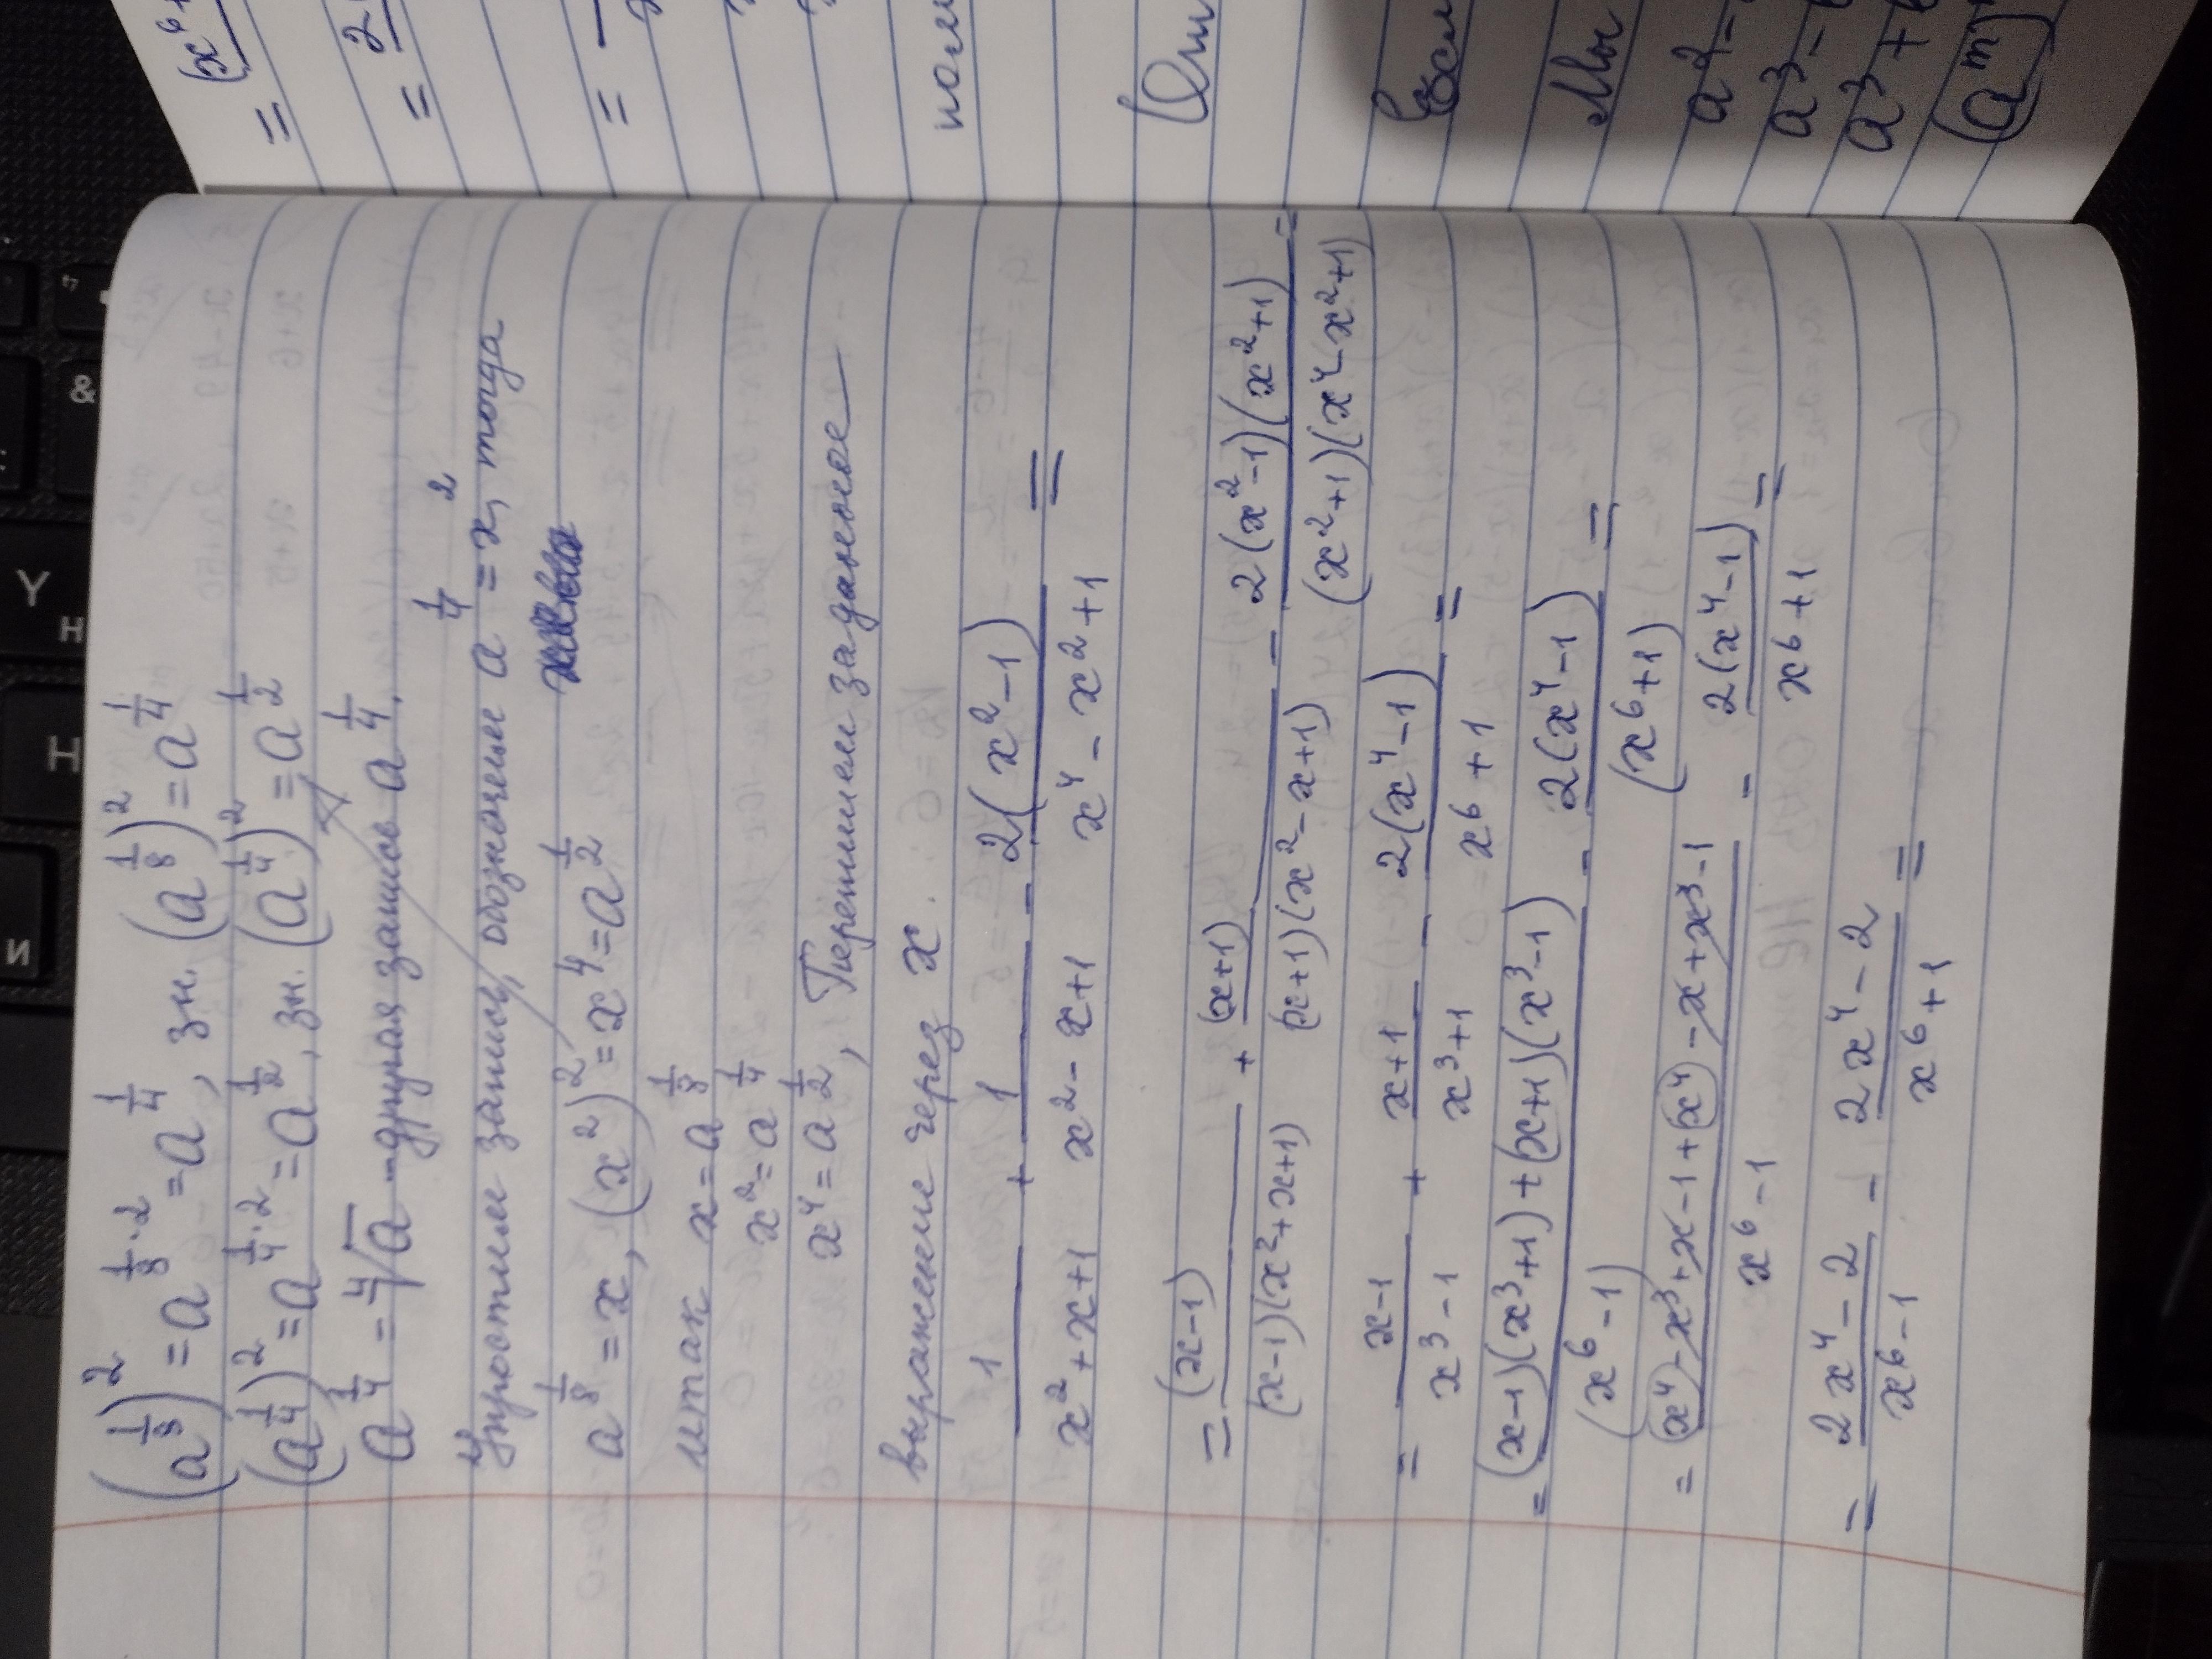 (a^(1/8))² = a^(1/8 · 2) = a^(1/4), зн. (a^(1/8))² = a^(1/4)
(a^(1/4))² = a^(1/4 · 2) = a^(1/2), зн. (a^(1/4))² = a^(1/2)
a^(1/4) = ⁴√a – другая запись a^(1/4).
1/4 2
Упростим запись, обозначим a = x, тогда
a^(1/8) = x, (x²)² = x⁴ = a^(1/2)
итак x = a^(1/8)
x² = a^(1/4)
x⁴ = a^(1/2), Перепишем заданное
выражение через x.
1/(x²+x+1) + 1/(x²-x+1) - 2(x²-1)/(x⁴-x²+1) =
= (x-1)/((x-1)(x²+x+1)) + (x+1)/((x+1)(x²-x+1)) - 2(x²-1)(x²+1)/((x²+1)(x⁴-x²+1)) =
= (x-1)/(x³-1) + (x+1)/(x³+1) - 2(x⁴-1)/(x⁶+1) =
= ((x-1)(x³+1)+(x+1)(x³-1))/(x⁶-1) - 2(x⁴-1)/(x⁶+1) =
= (x⁴-x³+x-1+x⁴-x+x³-1)/(x⁶-1) - 2(x⁴-1)/(x⁶+1) =
= (2x⁴-2)/(x⁶-1) - (2x⁴-2)/(x⁶+1) =
= (x⁶+
= 2
= –
Мы
a² -
a³ -
a³ +
(a^m)